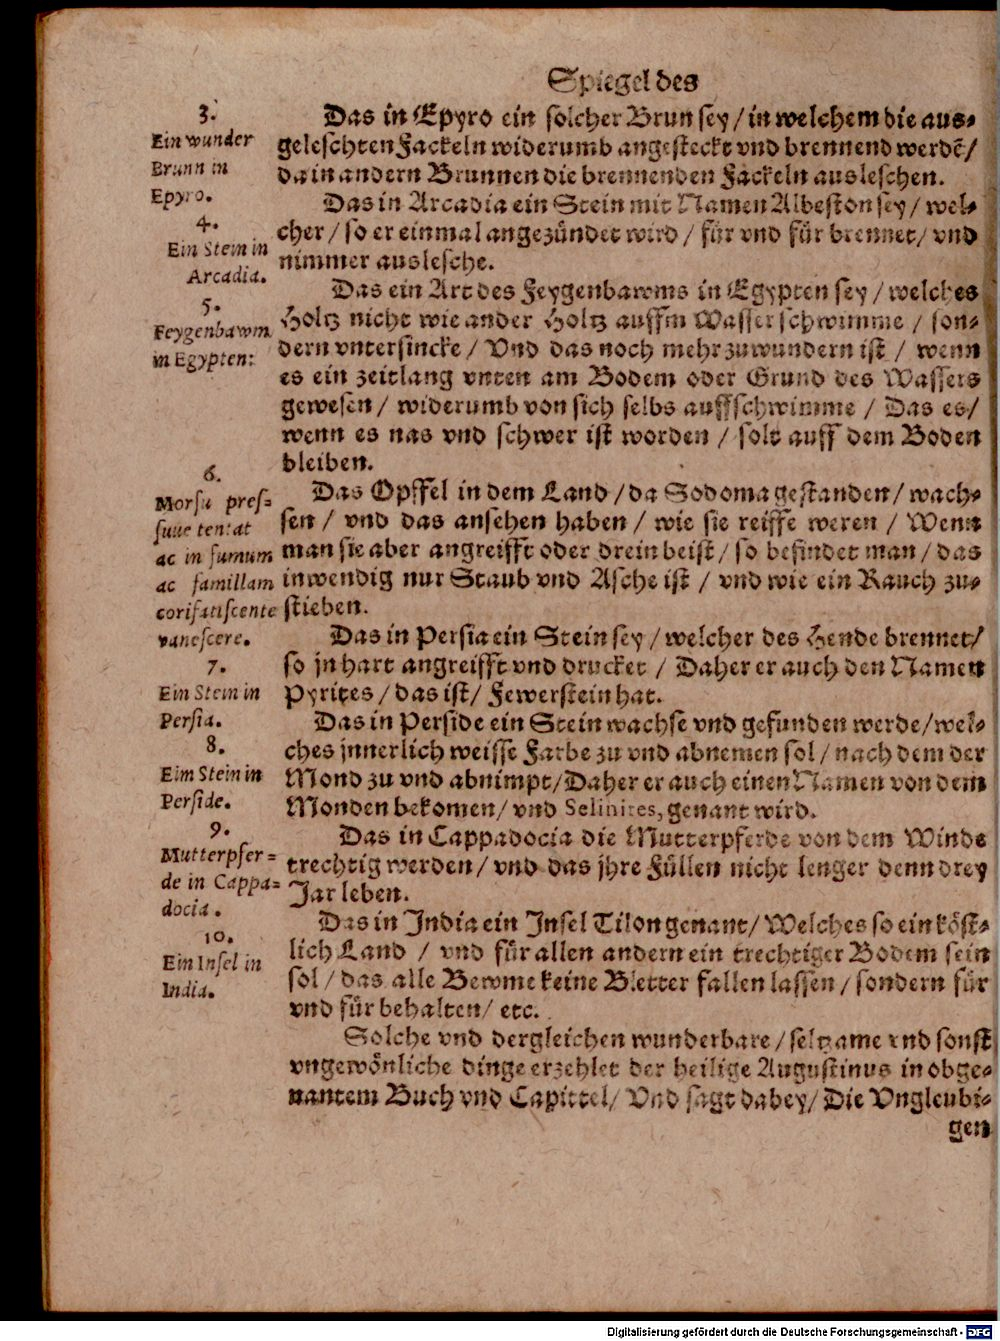 Spiegel des
3.
Ein wunder
Brunn in
Epyro.
Das in Epyro ein solcher Brun sey / in welchem die aus-
geleschten Fackeln widerumb angesteckt vnd brennend werdē /
da in andern Brunnen die brennenden Fackelnausleschen.
4.
Ein Stein in
Arcadia.
Das in Arcadia ein Stein mit Namen Albeston sey / wel-
cher / so er einmal angezündet wird / für vnd für brennet / vnd
nimmer auslesche.
5.
Feygenbawm
in Egypten:
Das ein Art des Feygenbawms in Egypten sey / welches
Holtz nicht wie ander Holtz auffm Wasser schwimme / son-
dern vntersincke / Vnd das noch mehr zuwundern ist / wenn
es ein zeitlang vnten am Bodem oder Grund des Wassers
gewesen / widerumb von sich selbs auffschwimme / Das es /
wenn es nas vnd schwer ist worden / solt auff dem Boden
bleiben.
6.
Morsu pres-
suue tentat
ac in fumum
ac famillam
corifatiscente
vanescere.
Das Opffel in dem Land / da Sodoma gestanden / wach-
sen / vnd das ansehen haben / wie sie reiffe weren / Wenn
man sie aber angreifft oder drein beist / so befindet man / das
inwendig nur Staub vnd Asche ist / vnd wie ein Rauch zu-
stieben.
7.
Ein Stein in
Persia.
Das in Persia ein Stein sey / welcher des Hende brennet /
so jn hart angreifft vnd drucket / Daher er auch den Namen
Pyrites / das ist / Fewerstein hat.
8.
Eim Stein in
Perside.
Das in Perside ein Stein wachse vnd gefunden werde / wel-
ches jnnerlich weisse Farbe zu vnd abnemen sol / nach dem der
Mond zu vnd abnimpt / Daher er auch einen Namen von dem
Monden bekomen / vnd Selinites, genant wird.
9.
Mutterpfer-
de in Cappa-
docia.
Das in Cappadocia die Mutterpferde von dem Winde
trechtig werden / vnd das jhre Füllen nicht lenger denn drey
Jar leben.
10.
Ein Insel in
India.
Das in India ein Insel Tilon genant / Welches so ein köst-
lich Land / vnd für allen andern ein trechtiger Bodem sein
sol / das alle Bewme keine Bletter fallen lassen / sondern für
vnd für behalten / etc.
Solche vnd dergleichen wunderbare / seltzame vnd sonst
vngewönliche dinge erzehlet der heilige Augustinus in obge-
nantem Buch vnd Capittel / Vnd sagt dabey / Die Vngleubi-
gen
Digitalisierung gefördert durch die Deutsche Forschungsgemeinschaft - DFG